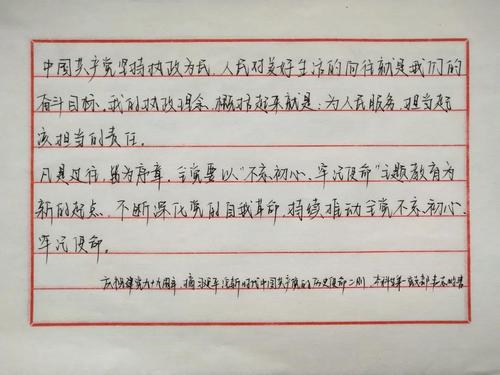 中国共产党坚持执政为民，人民对美好生活的向往就是我们的
奋斗目标。我的执政理念，概括起来就是：为人民服务，担当起
该担当的责任。
凡是过往，皆为序章。全党要以“不忘初心、牢记使命”主题教育为
新的起点，不断深化党的自我革命，持续推动全党不忘初心、
牢记使命。
庆祝建党九十九周年 摘习近平论新时代中国共产党的历史使命二则